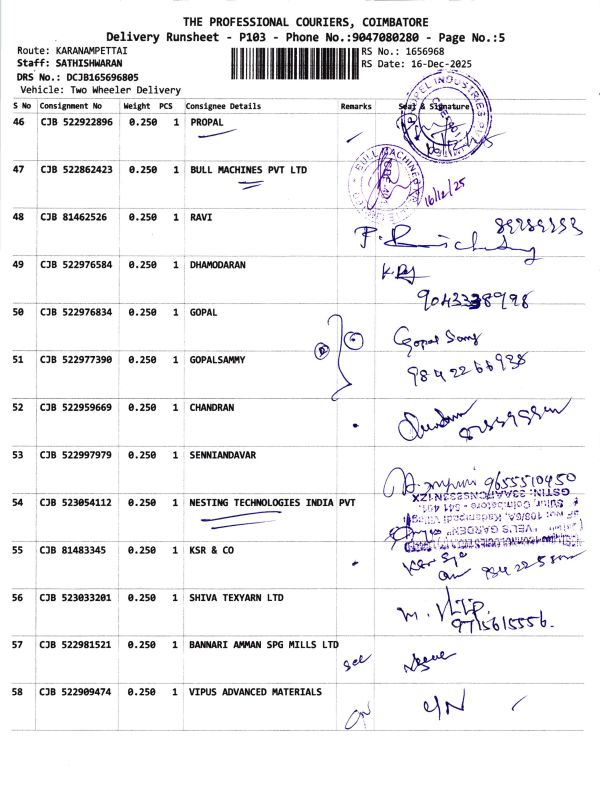 THE PROFESSIONAL COURIERS, COIMBATORE
Delivery Runsheet - P103 - Phone No.:9047080280 - Page No.:5
Route: KARANAMPETTAI
RS No.: 1656968
Staff: SATHISHWARAN
RS Date: 16-Dec-2025
DRS No.: DCJB165696805
Vehicle: Two Wheeler Delivery
S No Consignment No Weight PCS Consignee Details Remarks Seal & Signature
46 CJB 522922896 0.250 1 PROPAL
47 CJB 522862423 0.250 1 BULL MACHINES PVT LTD
BULL MACHINES
16/12/25
48 CJB 81462526 0.250 1 RAVI
49 CJB 522976584 0.250 1 DHAMODARAN
9043338998
50 CJB 522976834 0.250 1 GOPAL
Gopal Samy
51 CJB 522977390 0.250 1 GOPALSAMMY
9842266938
52 CJB 522959669 0.250 1 CHANDRAN
53 CJB 522997979 0.250 1 SENNIANDAVAR
9655510450
54 CJB 523054112 0.250 1 NESTING TECHNOLOGIES INDIA PVT
"VEL'S GARDEN"
55 CJB 81483345 0.250 1 KSR & CO
56 CJB 523033201 0.250 1 SHIVA TEXYARN LTD
9715615556.
57 CJB 522981521 0.250 1 BANNARI AMMAN SPG MILLS LTD
58 CJB 522909474 0.250 1 VIPUS ADVANCED MATERIALS